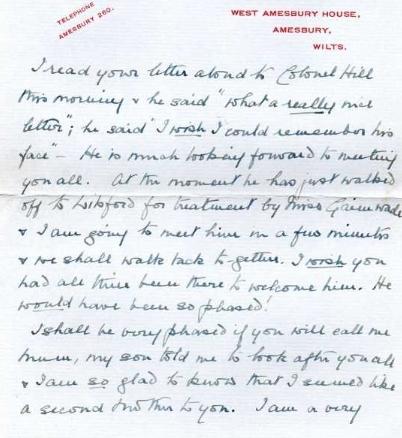 TELEPHONE
AMESBURY 260.
WEST AMESBURY HOUSE,
AMESBURY,
WILTS.
I read your letter aloud to Colonel Hill
this morning & he said "what a really nice
letter"; he said "I wish I could remember his
face" – He is much looking forward to meeting
you all. At the moment he has just walked
off to for treatment by Miss
& I am going to meet him in a few minutes
& we shall walk back together. I wish you
had all three been there to welcome him. He
would have been so phased!
I shall be very phased if you will call me
mum, my son told me to look after you all
& I am so glad to know that I seemed like
a second mother to you. I am a very